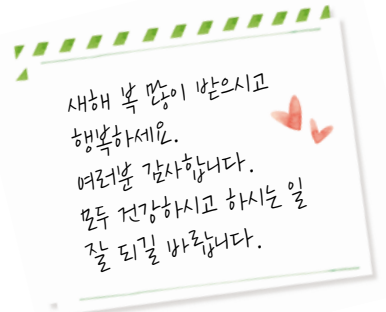 새해 복 많이 받으시고
행복하세요.
여러분 감사합니다.
모두 건강하시고 하시는 일
잘 되길 바랍니다.